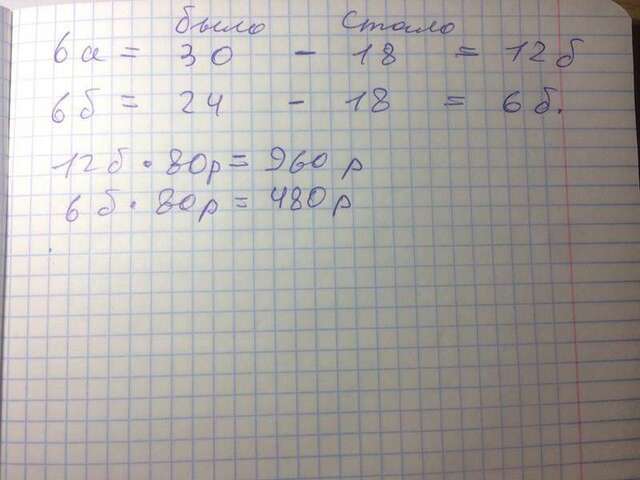 было стало
6а = 30 - 18 = 12б
6б = 24 - 18 = 6б.
12б · 80р = 960р
6б · 80р = 480р